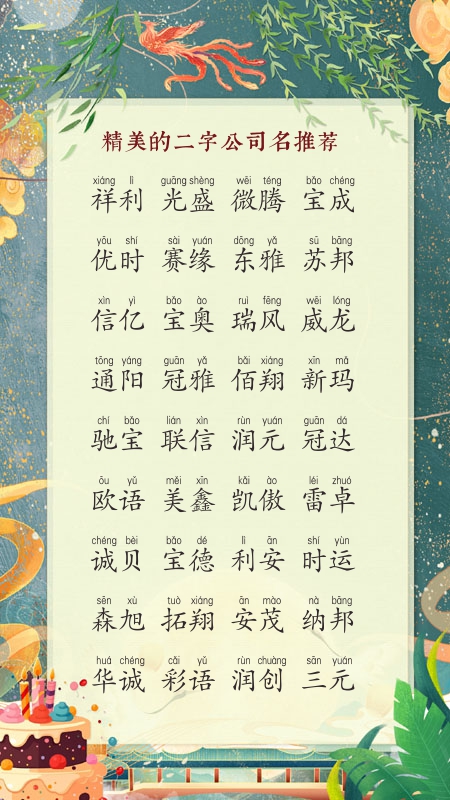 精美的二字公司名推荐
xiáng lì guāng shèng wēi téng bǎo chéng
祥利 光盛 微腾 宝成
yōu shí sài yuán dōng yǎ sū bāng
优时 赛缘 东雅 苏邦
xìn yì bǎo ào ruì fēng wēi lóng
信亿 宝奥 瑞风 威龙
tōng yáng guān yǎ bǎi xiáng xīn mǎ
通阳 冠雅 佰翔 新玛
chí bǎo lián xìn rùn yuán guān dá
驰宝 联信 润元 冠达
ōu yǔ měi xīn kǎi ào léi zhuó
欧语 美鑫 凯傲 雷卓
chéng bèi bǎo dé lì ān shí yùn
诚贝 宝德 利安 时运
sēn xù tuò xiáng ān mào nà bāng
森旭 拓翔 安茂 纳邦
huá chéng cǎi yǔ rùn chuàng sān yuán
华诚 彩语 润创 三元